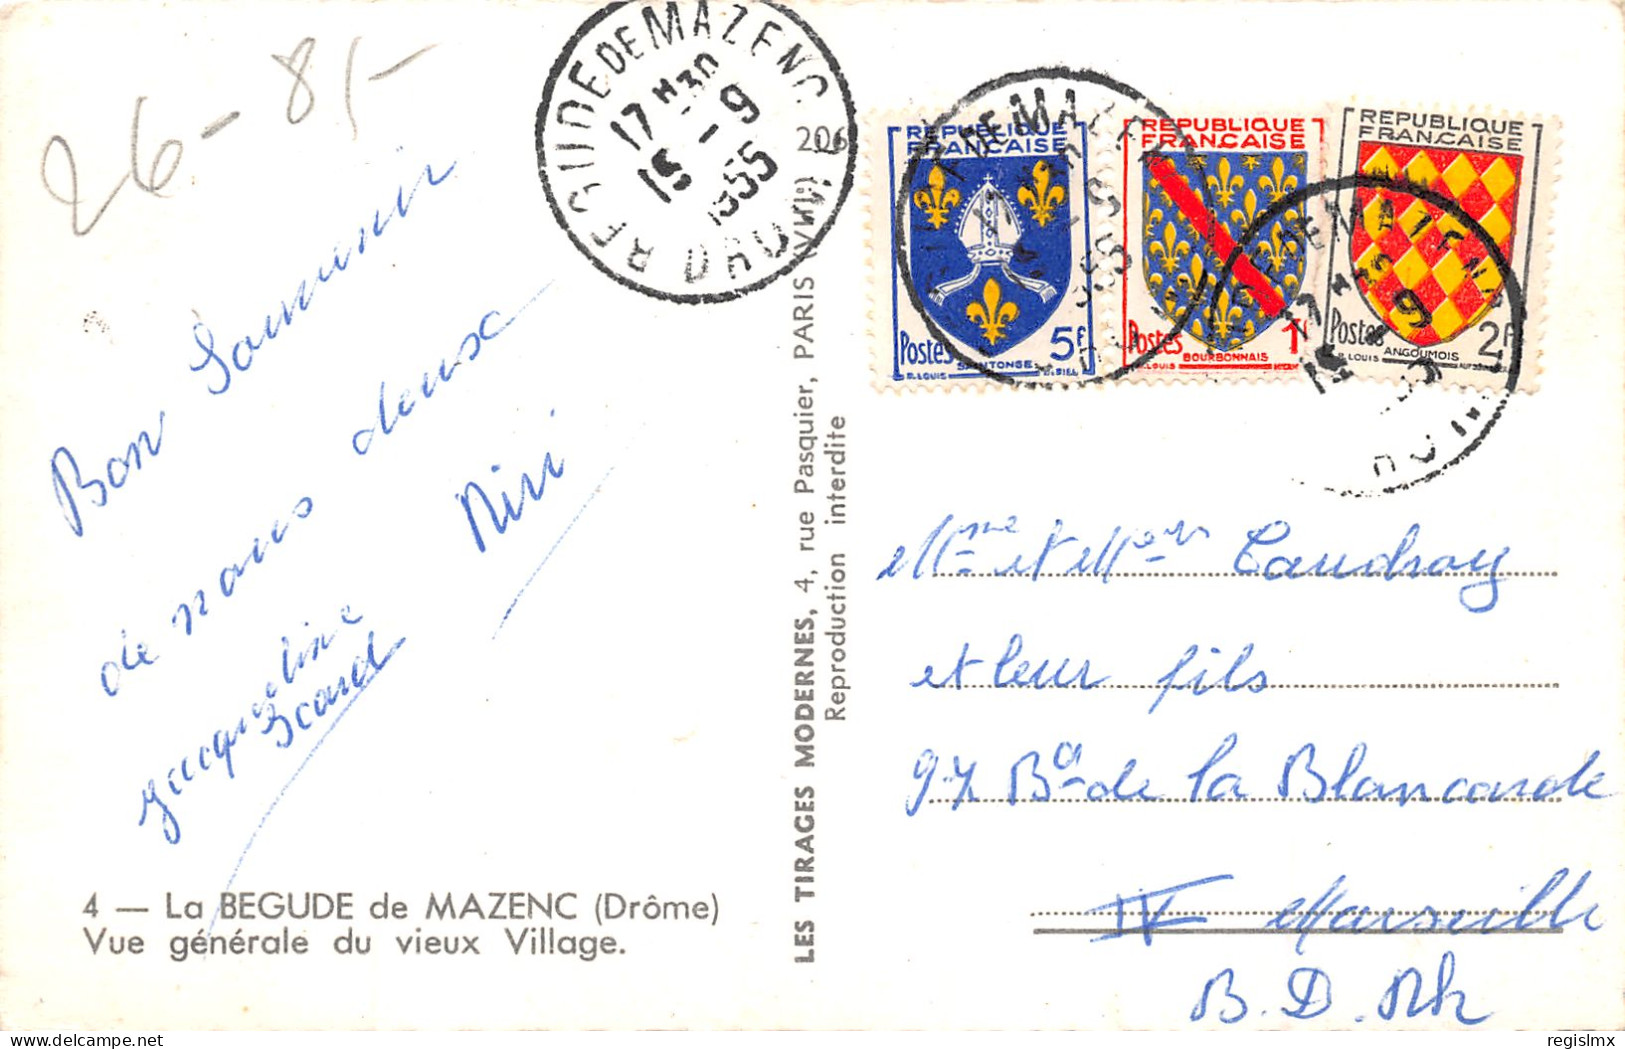 26-81-
BEGUDE DE MAZENC
17 H 30
15 - 9
1955
DROME
206
REPUBLIQUE
FRANÇAISE
Postes 5F
SAINTONGE
R. LOUIS
REPUBLIQUE
FRANÇAISE
Postes 1F
BOURBONNAIS
R. LOUIS
REPUBLIQUE
FRANÇAISE
Postes 2F
ANGOUMOIS
R. LOUIS
Bon Souvenir
de nous deux
Jacqueline Nini
Icard
4 — La BEGUDE de MAZENC (Drôme)
Vue générale du vieux Village.
LES TIRAGES MODERNES, 4, rue Pasquier, PARIS (VIIIe)
Reproduction interdite
Mme et Mons Caudray
et leur fils
97 Bd de la Blancarde
IV Marseille
B.D.Rh
regislmx